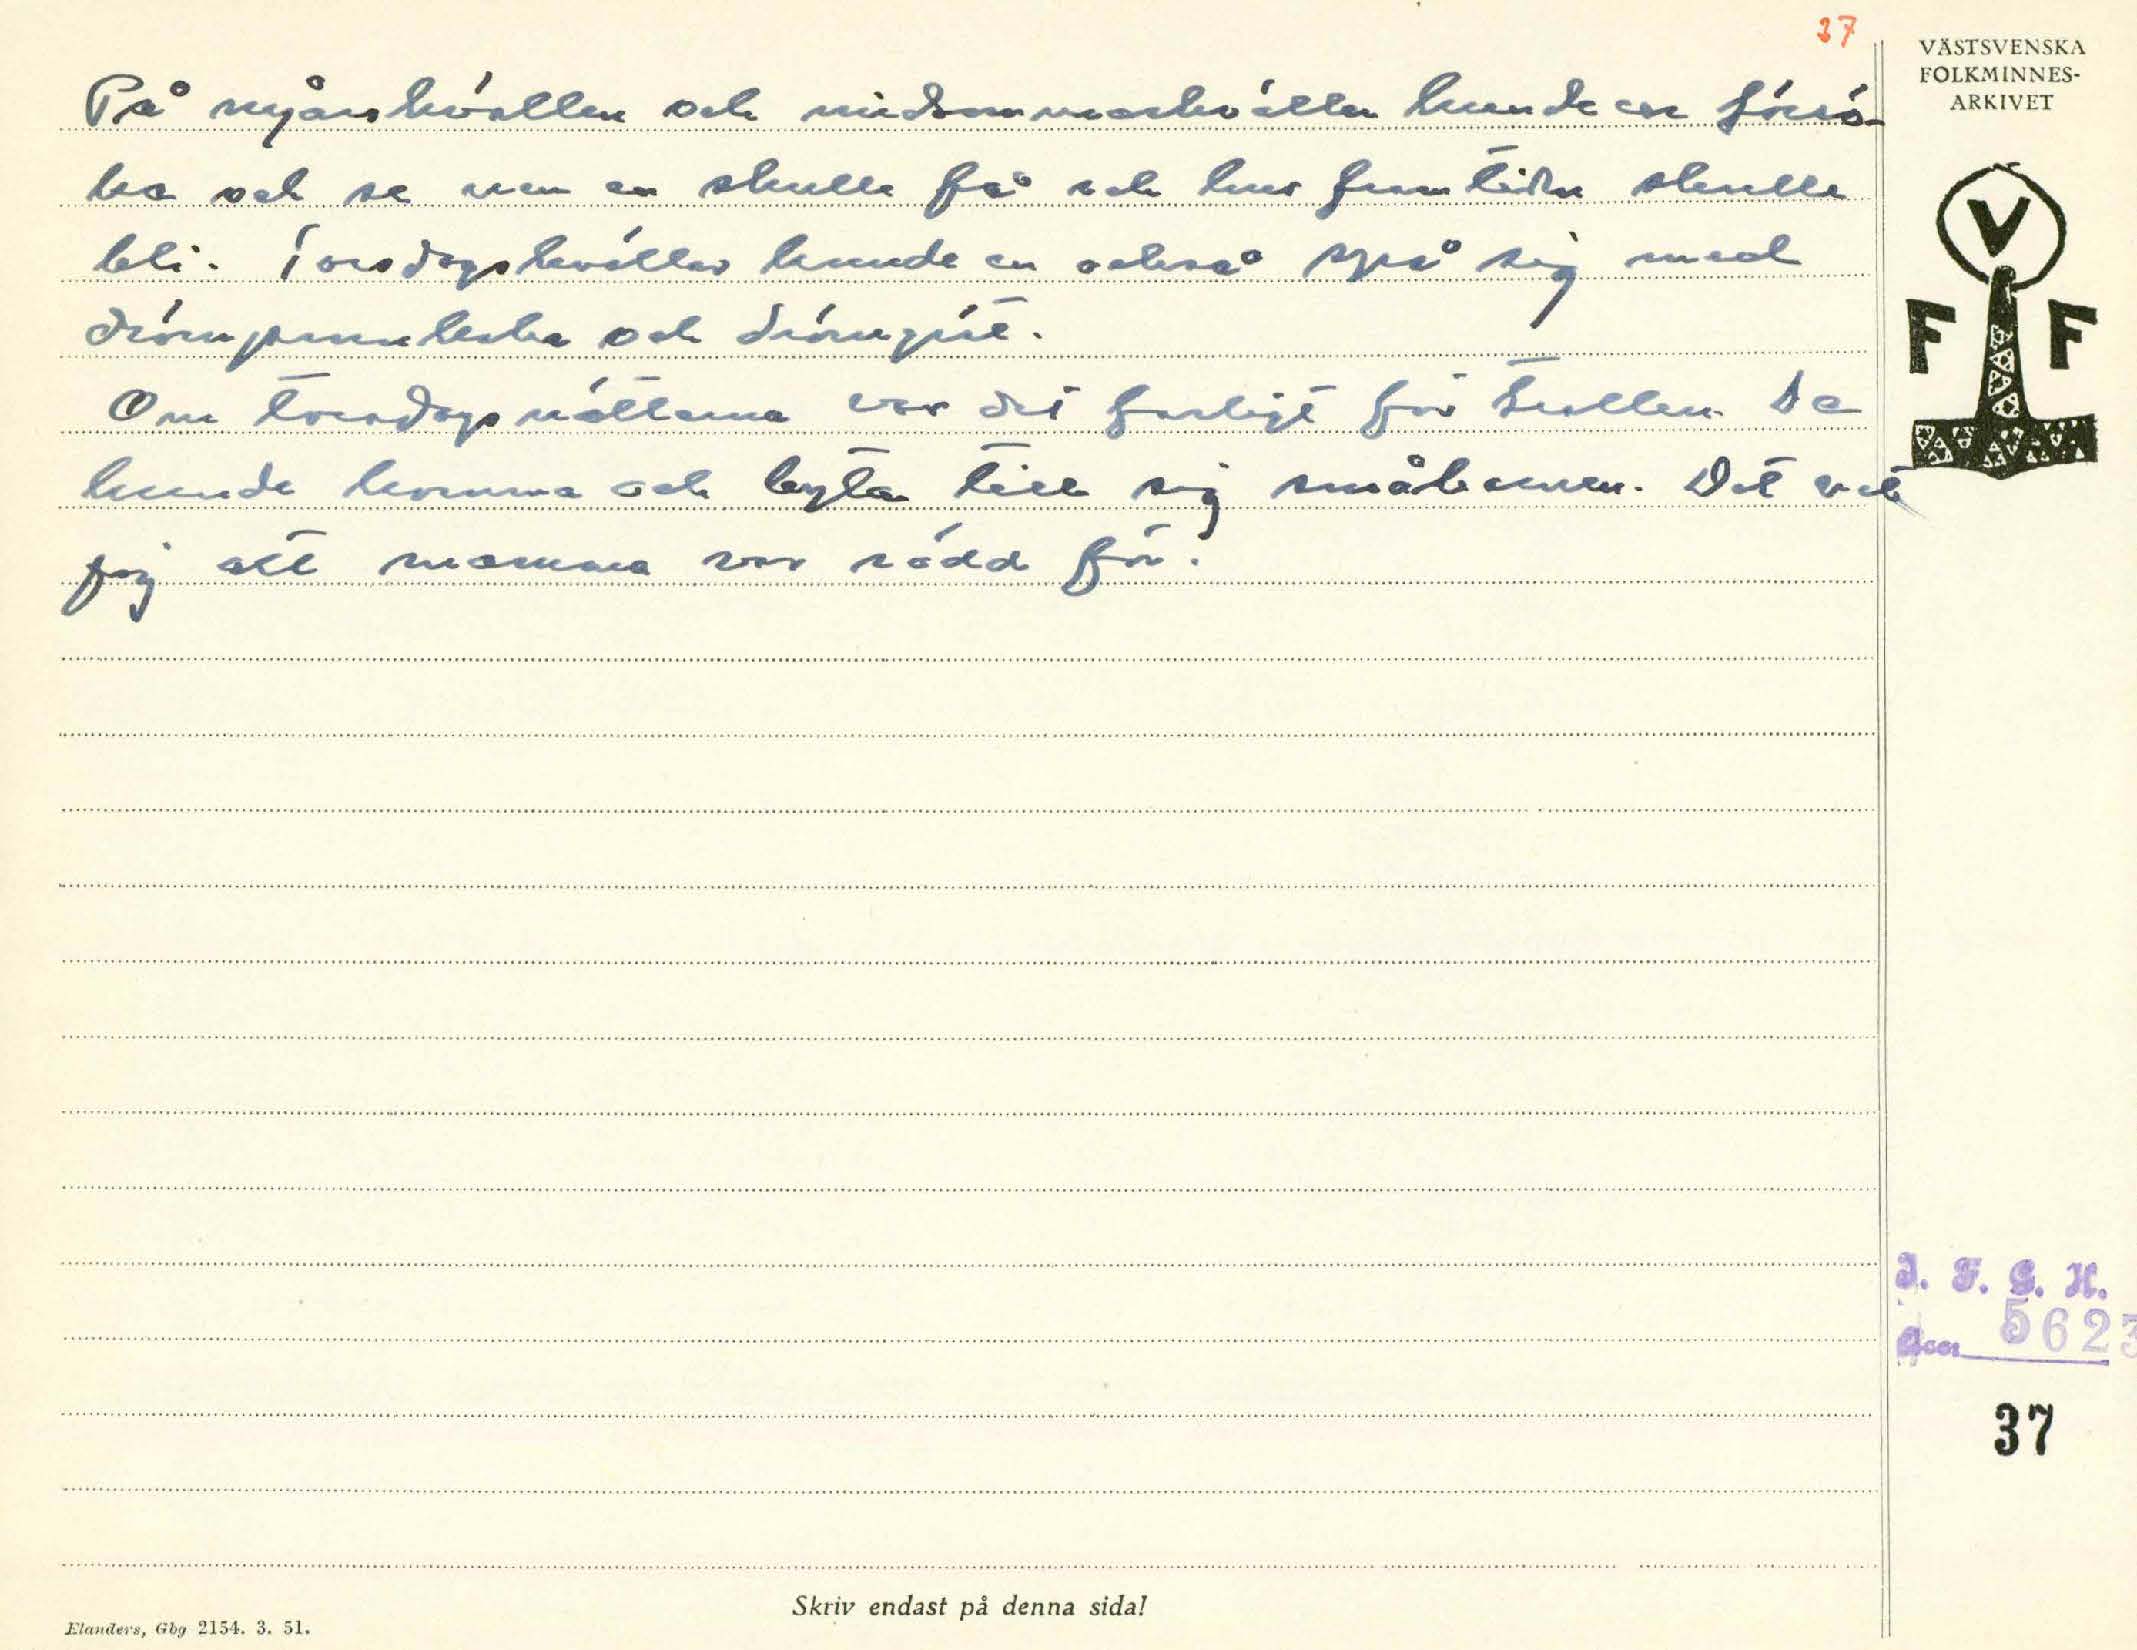 37
VÄSTSVENSKA
FOLKMINNES-
ARKIVET
V
F F
På nyårskvällen och midsommarkvällen kunde en försö-
ka och se vem en skulle få och hur framtiden skulle
bli. Torsdagskvällar kunde en också spå sig med
drömpannkaka och drömgröt.
Om torsdagsnätterna var det farligt för trollen. De
kunde komma och byta till sig småbarnen. Det vet
jag att mamma var rädd för.
I. F. G. H.
Acc. 5623
37
Skriv endast på denna sida!
Elanders, Gbg 2154. 3. 51.